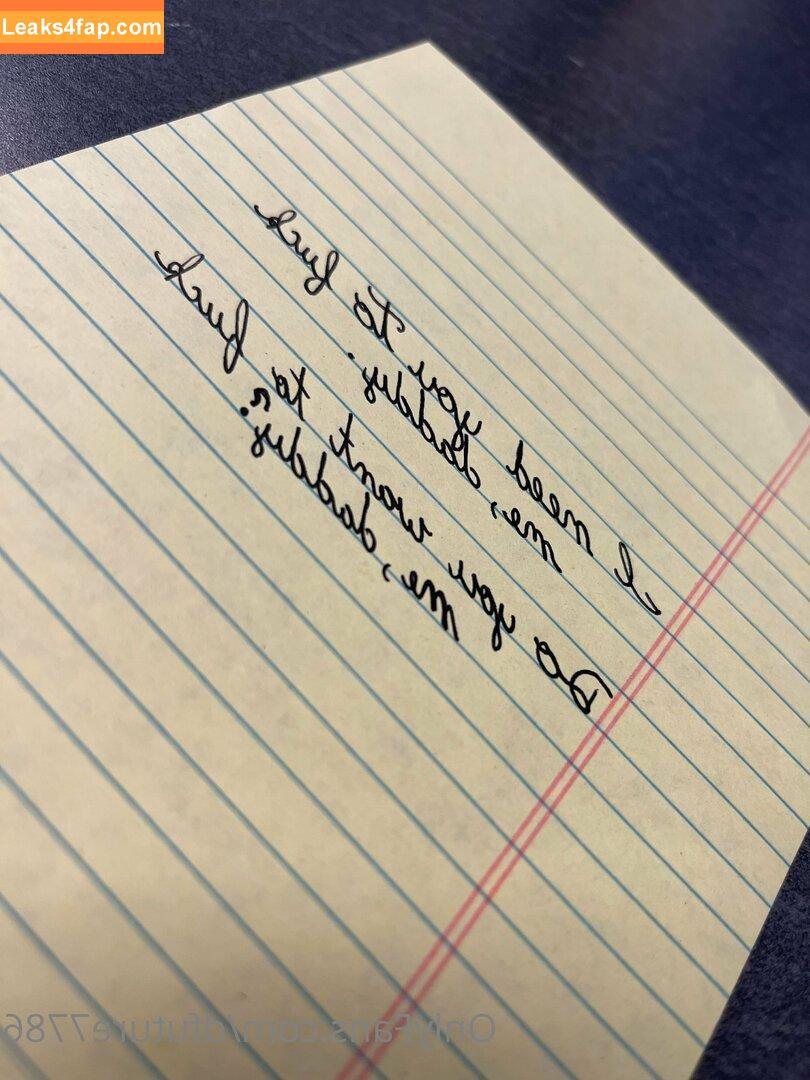 Leaks4fap.com
I need you to fuck
me, daddy.
Do you want to fuck
me, daddy?
OnlyFans.com/dfuture77869